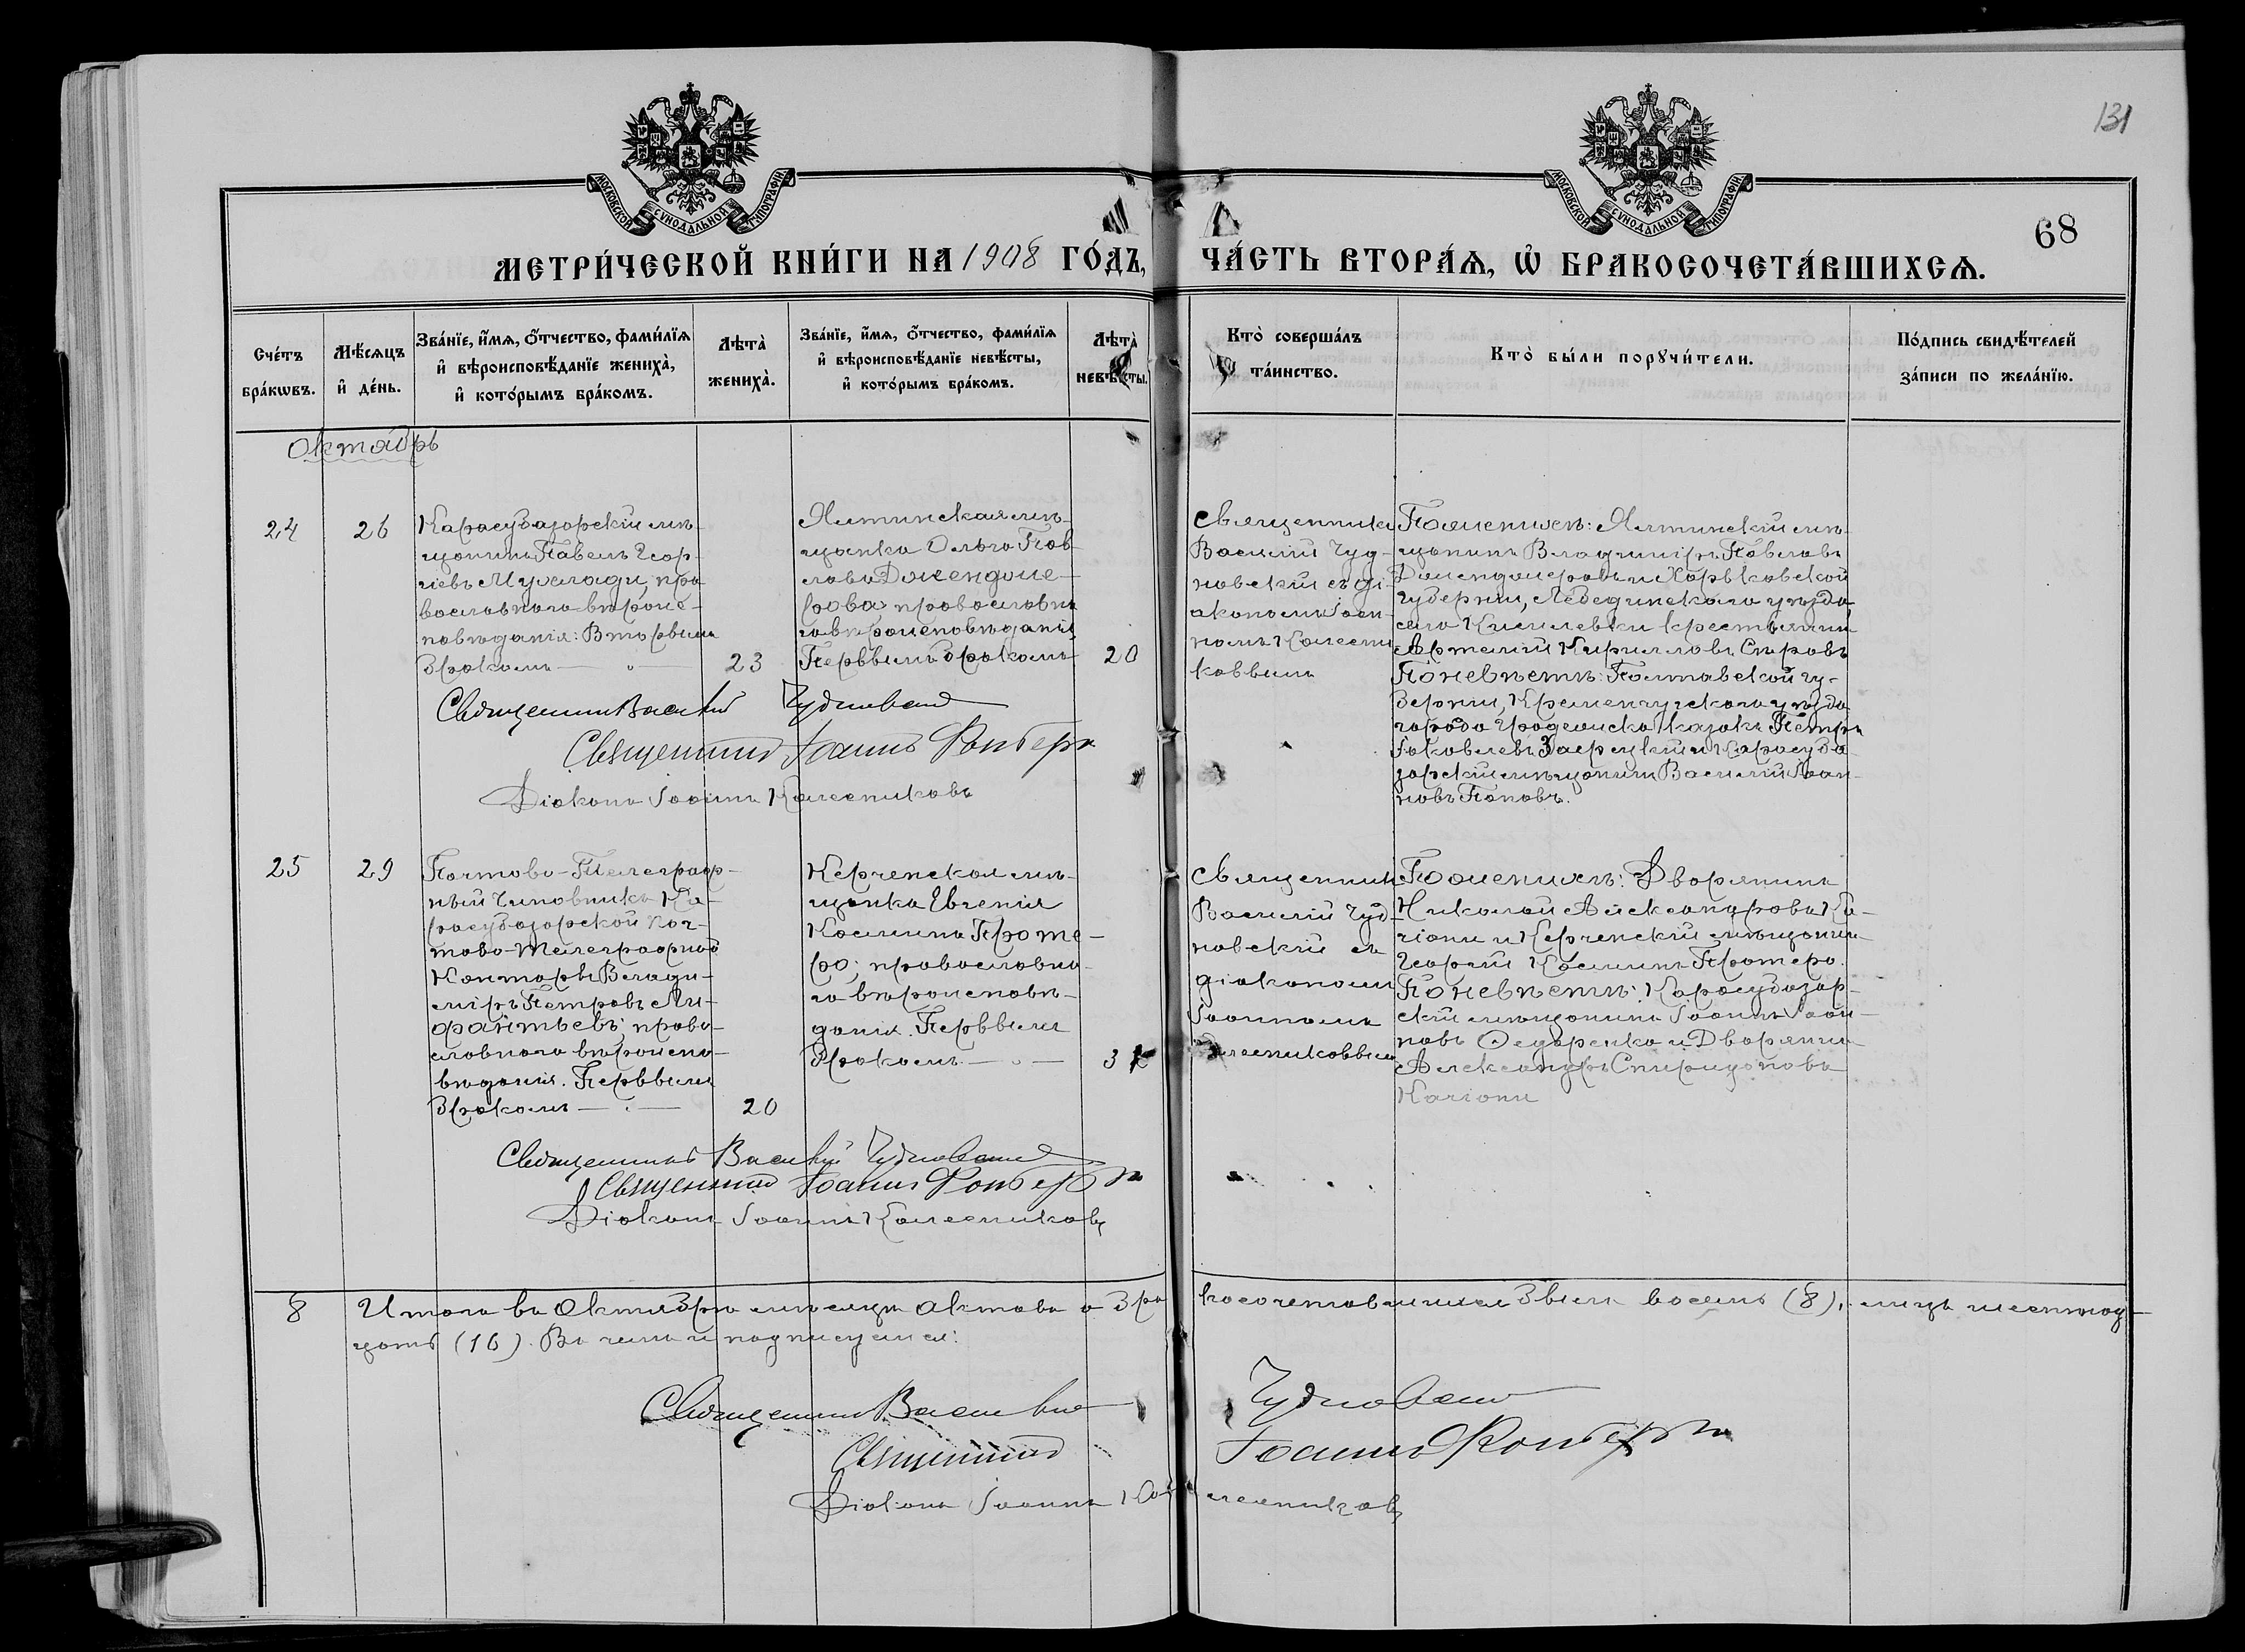 131
68
МОСКОВСКОЙ СѴНОДАЛЬНОЙ ТИПОГРАФІИ
МОСКОВСКОЙ СѴНОДАЛЬНОЙ ТИПОГРАФІИ
МЕТРИ́ЧЕСКОЙ КНИ́ГИ НА 1908 ГО́ДЪ, ЧА́СТЬ ВТОРА́Я, Ѡ҆ БРАКОСОЧЕТА́ВШИХСЯ.
Сче́тъ
бра́кѡвъ.
Мѣ́сяцъ
и҆ де́нь.
Зва́нїе, и҆́мя, ѻ҆́тчество, фами́лїя
и҆ вѣроисповѣ́данїе жениха̀,
и҆ кото́рымъ бра́комъ.
Лѣта̀
жениха̀.
Зва́нїе, и҆́мя, ѻ҆́тчество, фами́лїя
и҆ вѣроисповѣ́данїе невѣ́сты,
и҆ кото́рымъ бра́комъ.
Лѣта̀
невѣ́сты.
Кто̀ соверша́лъ
та́инство.
Кто̀ бы́ли порꙋчи́тели.
По́дпись свидѣ́телей
за́писи по жела́нїю.
Октябрь
24
26
Карасубазарскій мѣ-
щанинъ Павелъ Геор-
гіевъ Муселади, пра-
вославнаго вѣроис-
повѣданія: Вторымъ
бракомъ
23
Ялтинская мѣ-
щанка Ольга Пав-
лова Дамендоме-
рова православна-
го вѣроисповѣданія,
Первымъ бракомъ
20
Священникъ
Василій Чуд-
новскій съ ді-
акономъ Іоан-
номъ Колесни-
ковымъ
По женихѣ: Ялтинскій мѣ-
щанинъ Владиміръ Павловъ
Дамендомеровъ и Харьковской
губерніи, Лебединскаго уѣзда,
села Киселевки крестьянинъ
Артемій Кирилловъ Сѣровъ
По невѣстѣ: Полтавской гу-
берніи, Кременчугскаго уѣзда
города Градижска казакъ Петръ
Яковлевъ Заерскій и Карасуба-
зарскій мѣщанинъ Василій Іоан-
новъ Поповъ.
Священникъ Василій Чудновскій
Священникъ Іоаннъ
Діаконъ Іоаннъ Колесниковъ
25
29
Почтово-Телеграф-
ный Чиновникъ Ка-
расубазарской Поч-
тово-Телеграфной
Конторы Влади-
міръ Петровъ Ли-
фантьевъ; право-
славнаго вѣроиспо-
вѣданія. Первымъ
бракомъ
20
Керченская мѣ-
щанка Евгенія
Космина Проте-
ро; православна-
го вѣроисповѣ-
данія. Первымъ
бракомъ
Священникъ
Василій Чуд-
новскій съ
діакономъ
Іоанномъ
Колесниковымъ
По женихѣ: Дворянинъ
Николай Александровъ Ка-
чіони и Керченскій мѣщанинъ
Георгій Косминъ Протеро.
По невѣстѣ: Карасубазар-
скій мѣщанинъ Іоаннъ Іоан-
новъ Ѳедоренко и Дворянинъ
Александръ Спиридоновъ
Качіони
Священникъ Василій Чудновскій
Священникъ Іоаннъ
Діаконъ Іоаннъ Колесниковъ
8
Итого въ Октябрѣ мѣсяцѣ актовъ о бракосочетавшихся было восемь (8), лицъ шестнад-
цать (16). Въ чемъ и подписуемся:
Священникъ Василій Чудновскій
Священникъ Іоаннъ
Діаконъ Іоаннъ Колесниковъ